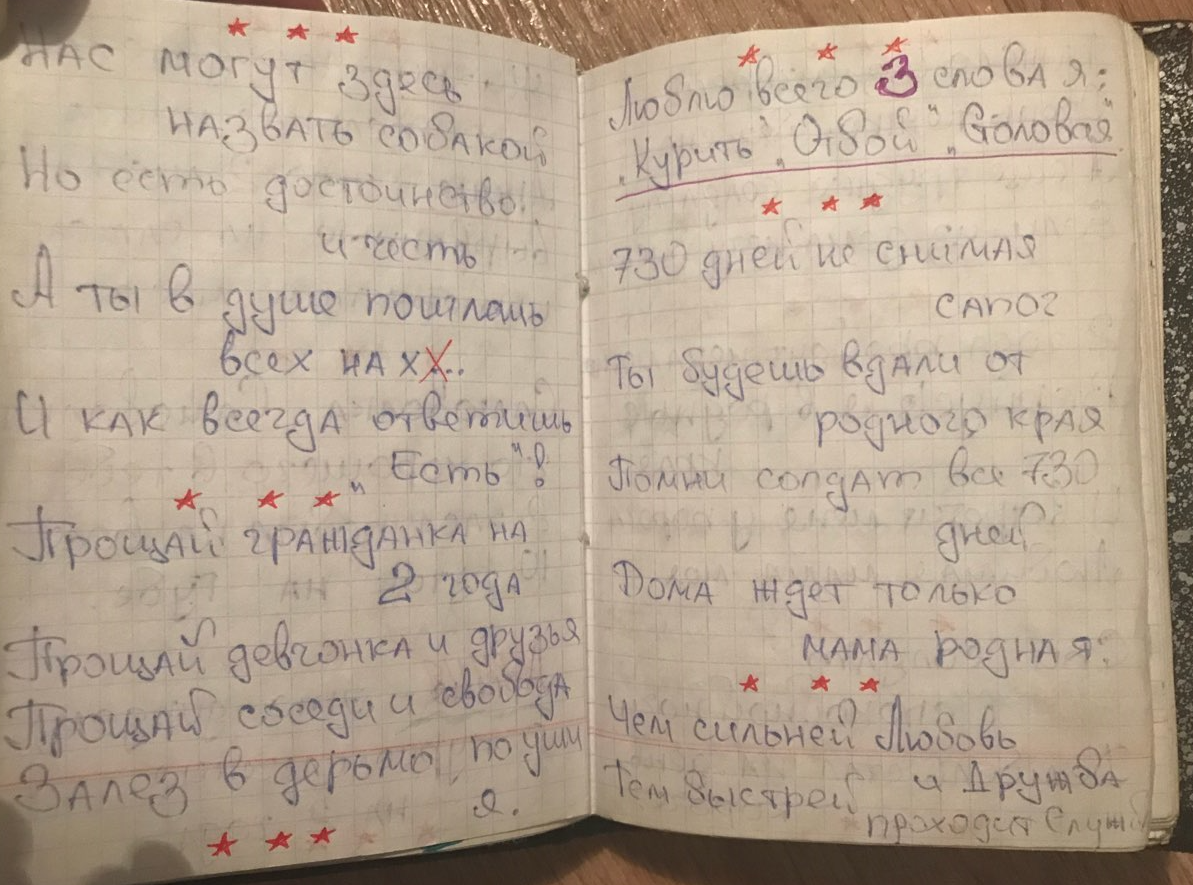 * * *
НАС могут здесь
НАЗВАТЬ собакой
Но есть достоинство
и честь
А ты в душе пошлешь
всех на хХ..
И как всегда ответишь
„Есть"!
* * *
Прощай гражданка на
2 года
Прощай девчонка и друзья
Прощай соседи и свобода
Залез в дерьмо по уши
я.
* * *
* * *
Люблю всего 3 слова я:
„Курить" „Отбой" „Столовая"
* * *
730 дней не снимая
сапог
Ты будешь вдали от
родного края
Помни солдат все 730
дней
Дома ждет только
мама родная.
* * *
Чем сильней Любовь
и Дружба
Тем быстрей
проходит Служб